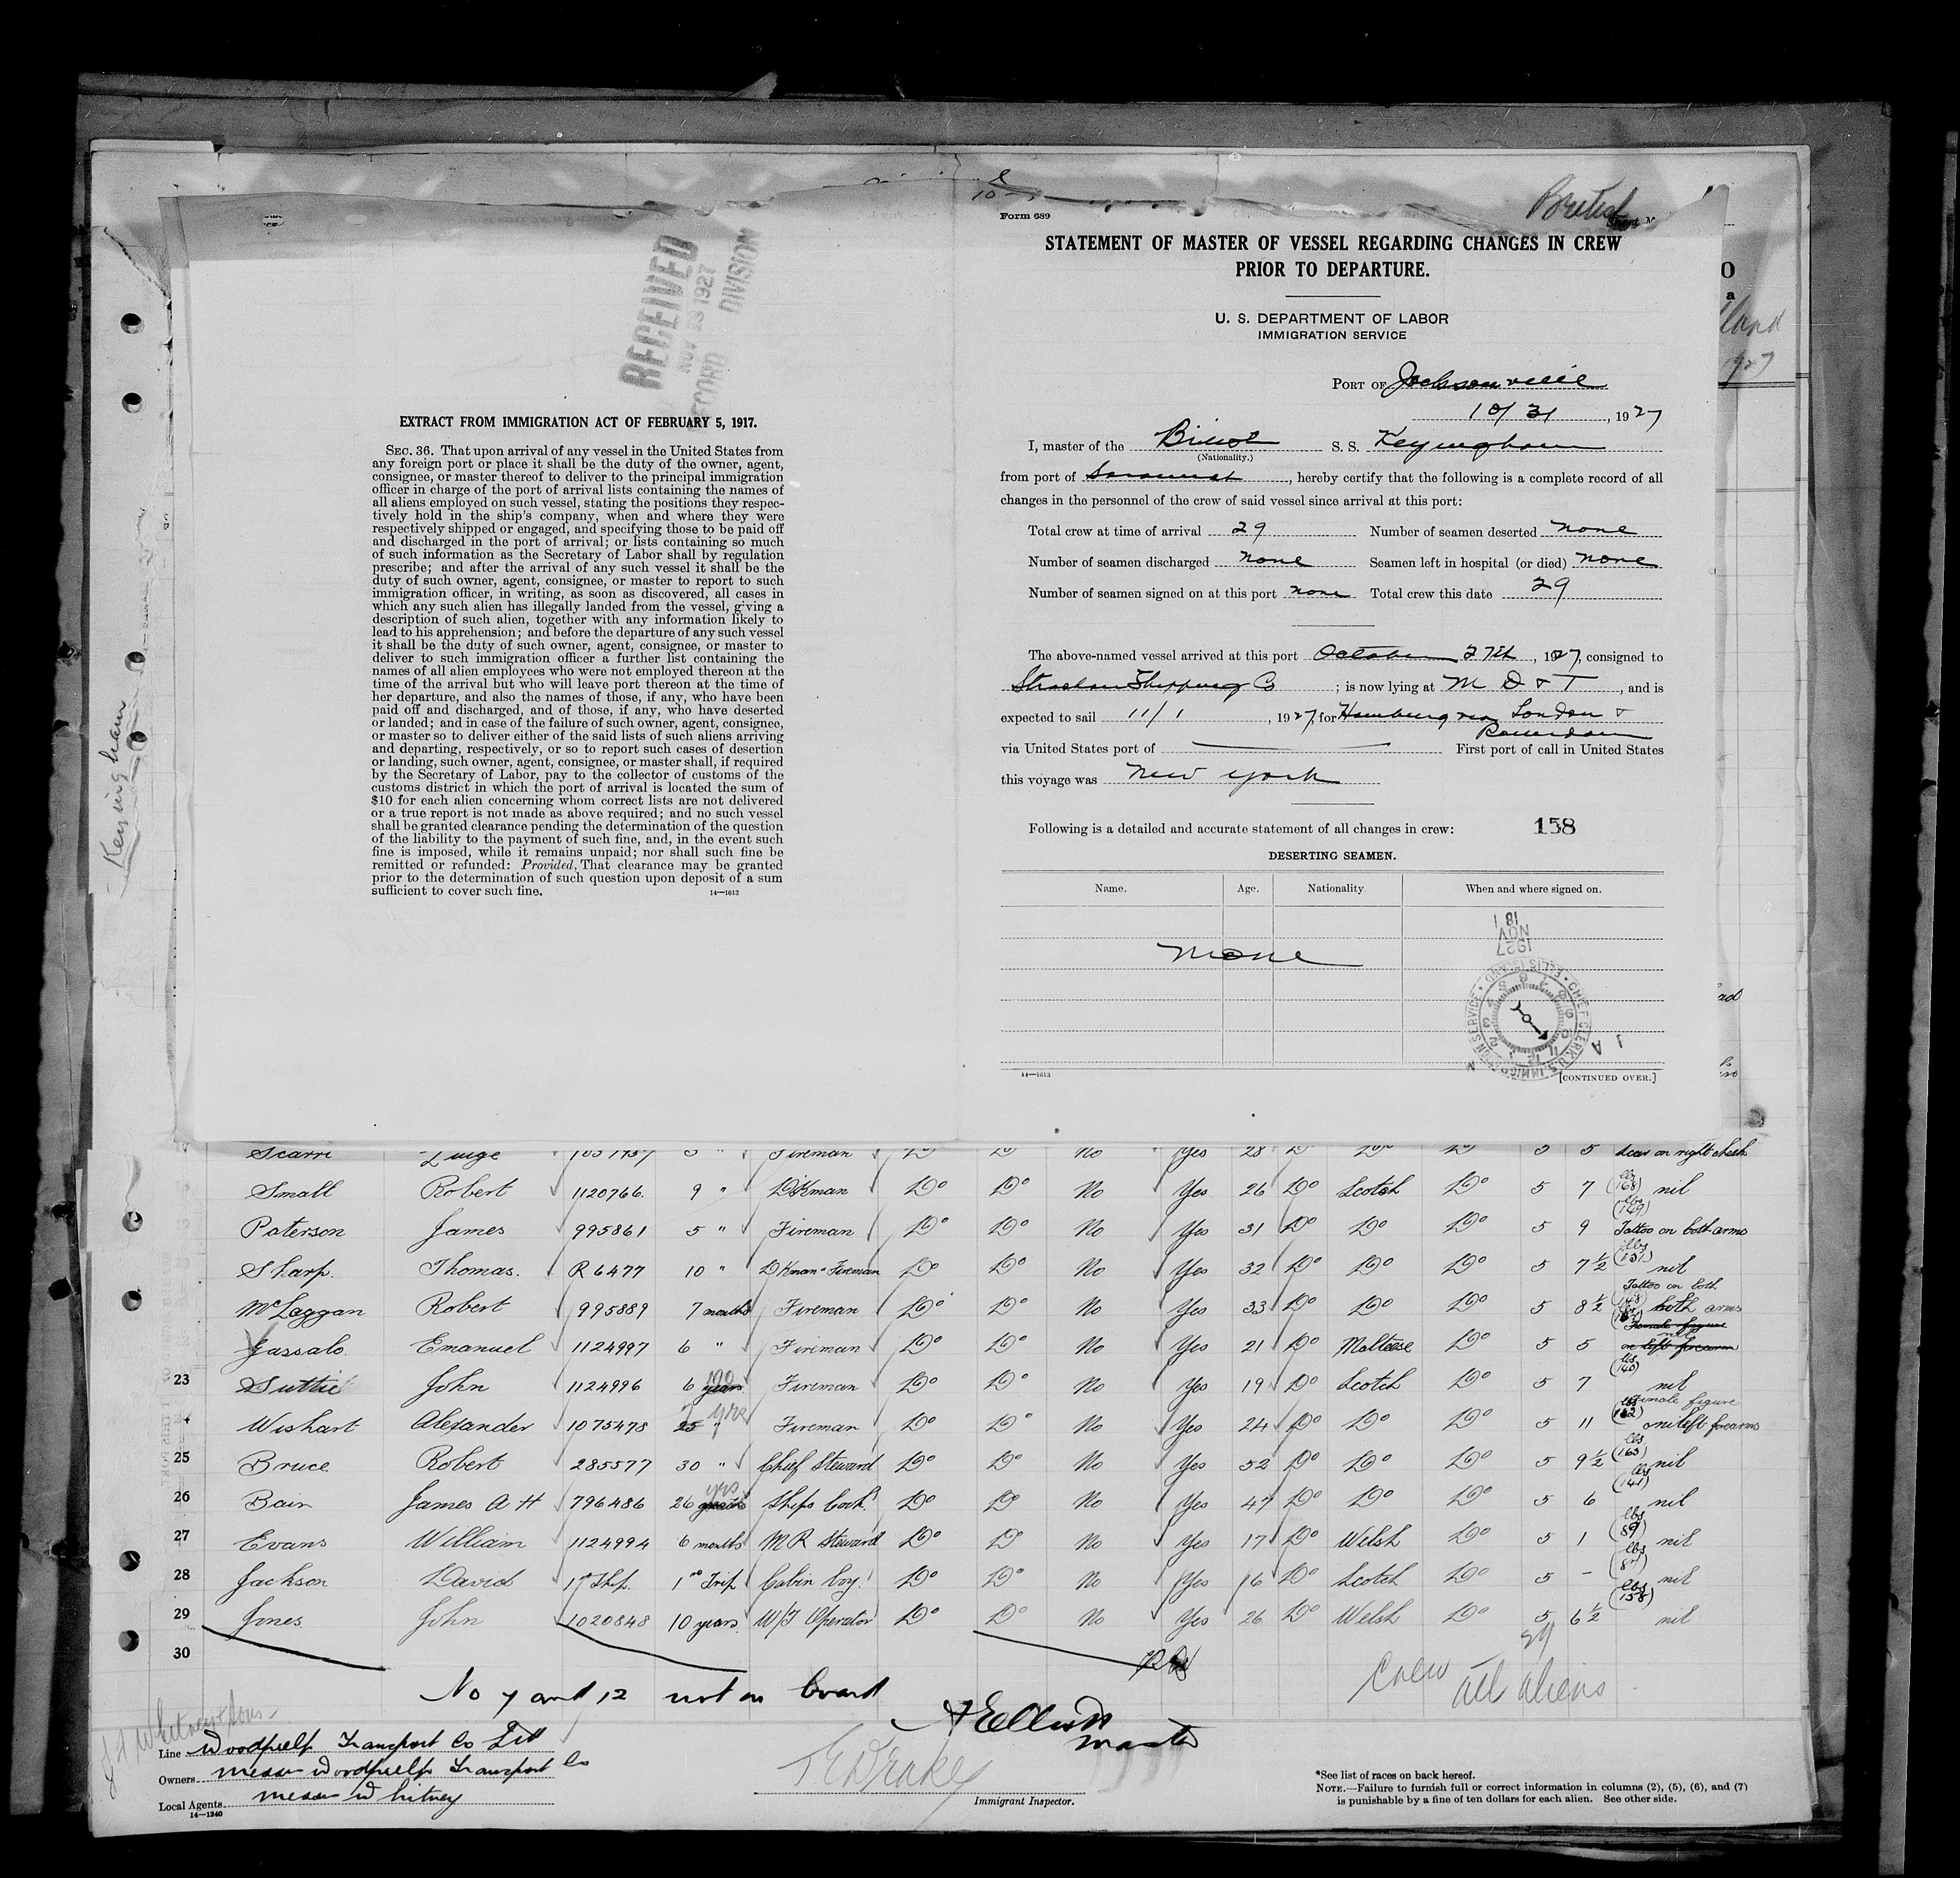 British
Form 689
STATEMENT OF MASTER OF VESSEL REGARDING CHANGES IN CREW
PRIOR TO DEPARTURE.
U. S. DEPARTMENT OF LABOR
IMMIGRATION SERVICE
PORT OF Jacksonville
10/31, 1927
I, master of the British S. S. Keyingham
(Nationality.)
from port of Savannah, hereby certify that the following is a complete record of all
changes in the personnel of the crew of said vessel since arrival at this port:
Total crew at time of arrival 29 Number of seamen deserted none
Number of seamen discharged none Seamen left in hospital (or died) none
Number of seamen signed on at this port none Total crew this date 29
The above-named vessel arrived at this port October 27th, 1927, consigned to
Strachan Shipping Co; is now lying at M D & T, and is
expected to sail 11/1, 1927, for Hamburg via London &
Rotterdam
via United States port of First port of call in United States
this voyage was New York
Following is a detailed and accurate statement of all changes in crew: 158
DESERTING SEAMEN.
Name. Age. Nationality. When and where signed on.
None
1927
NOV
18
CHIEF CLERK U.S. IMMIGRATION SERVICE ELLIS ISLAND
14—1613
[CONTINUED OVER.]
RECEIVED
NOV 18 1927
RECORD DIVISION
EXTRACT FROM IMMIGRATION ACT OF FEBRUARY 5, 1917.
SEC. 36. That upon arrival of any vessel in the United States from
any foreign port or place it shall be the duty of the owner, agent,
consignee, or master thereof to deliver to the principal immigration
officer in charge of the port of arrival lists containing the names of
all aliens employed on such vessel, stating the positions they respec-
tively hold in the ship's company, when and where they were
respectively shipped or engaged, and specifying those to be paid off
and discharged in the port of arrival; or lists containing so much
of such information as the Secretary of Labor shall by regulation
prescribe; and after the arrival of any such vessel it shall be the
duty of such owner, agent, consignee, or master to report to such
immigration officer, in writing, as soon as discovered, all cases in
which any such alien has illegally landed from the vessel, giving a
description of such alien, together with any information likely to
lead to his apprehension; and before the departure of any such vessel
it shall be the duty of such owner, agent, consignee, or master to
deliver to such immigration officer a further list containing the
names of all alien employees who were not employed thereon at the
time of the arrival but who will leave port thereon at the time of
her departure, and also the names of those, if any, who have been
paid off and discharged, and of those, if any, who have deserted
or landed; and in case of the failure of such owner, agent, consignee,
or master so to deliver either of the said lists of such aliens arriving
and departing, respectively, or so to report such cases of desertion
or landing, such owner, agent, consignee, or master shall, if required
by the Secretary of Labor, pay to the collector of customs of the
customs district in which the port of arrival is located the sum of
$10 for each alien concerning whom correct lists are not delivered
or a true report is not made as above required; and no such vessel
shall be granted clearance pending the determination of the question
of the liability to the payment of such fine, and, in the event such
fine is imposed, while it remains unpaid; nor shall such fine be
remitted or refunded: Provided, That clearance may be granted
prior to the determination of such question upon deposit of a sum
sufficient to cover such fine. 14—1613
Keyingham
Scarri Luige 1051757 5 " Fireman Do Do No Yes 28 Do Do Do 5 5 Scar on right cheek
Small Robert 1120766 9 " DKman Do Do No Yes 26 Do Scotch Do 5 7 lbs (168) nil
Paterson James 995861 5 " Fireman Do Do No Yes 31 Do Do Do 5 9 lbs (149) Tattoo on both arms
Sharp. Thomas. R 6477 10 " DKman & Fireman Do Do No Yes 32 Do Do Do 5 7½ lbs (151) nil
McLaggan Robert 995889 7 months Fireman Do Do No Yes 33 Do Do Do 5 8½ (148) Tattoo on both both arms
Gassalo Emanuel 1124997 6 " Fireman Do Do No Yes 21 Do Maltese Do 5 5 female figure on left forearm nil
23 Suttie John 1124996 6 years mo Fireman Do Do No Yes 19 Do Scotch Do 5 7 lbs (140) nil
Wishart Alexander 1075478 25 " yrs Fireman Do Do No Yes 24 Do Do Do 5 11 female figure on left forearms
25 Bruce Robert 285577 30 " Chief Steward Do Do No Yes 52 Do Do Do 5 9½ lbs (163) nil
26 Bain James A H 796486 26 yrs Ships Cook Do Do No Yes 47 Do Do Do 5 6 lbs (141) nil
27 Evans William 1124994 6 months M R Steward Do Do No Yes 17 Do Welsh Do 5 1 lbs (89) nil
28 Jackson David 1st Ship. 1st Trip Cabin boy. Do Do No Yes 16 Do Scotch Do 5 - lbs nil
29 Jones John 1020848 10 years W/T Operator Do Do No Yes 26 Do Welsh Do 5 6½ lbs (158) nil
30
No 7 and 12 not on board
Crew 29 all aliens
A Elliott
Master
J H Whitney & Sons
Line Woodpulp Transport Co Ltd
Owners Messrs Woodpulp Transport Co
Local Agents Messrs Whitney
14—1240
T E Drake
Immigrant Inspector.
*See list of races on back hereof.
NOTE.—Failure to furnish full or correct information in columns (2), (5), (6), and (7)
is punishable by a fine of ten dollars for each alien. See other side.